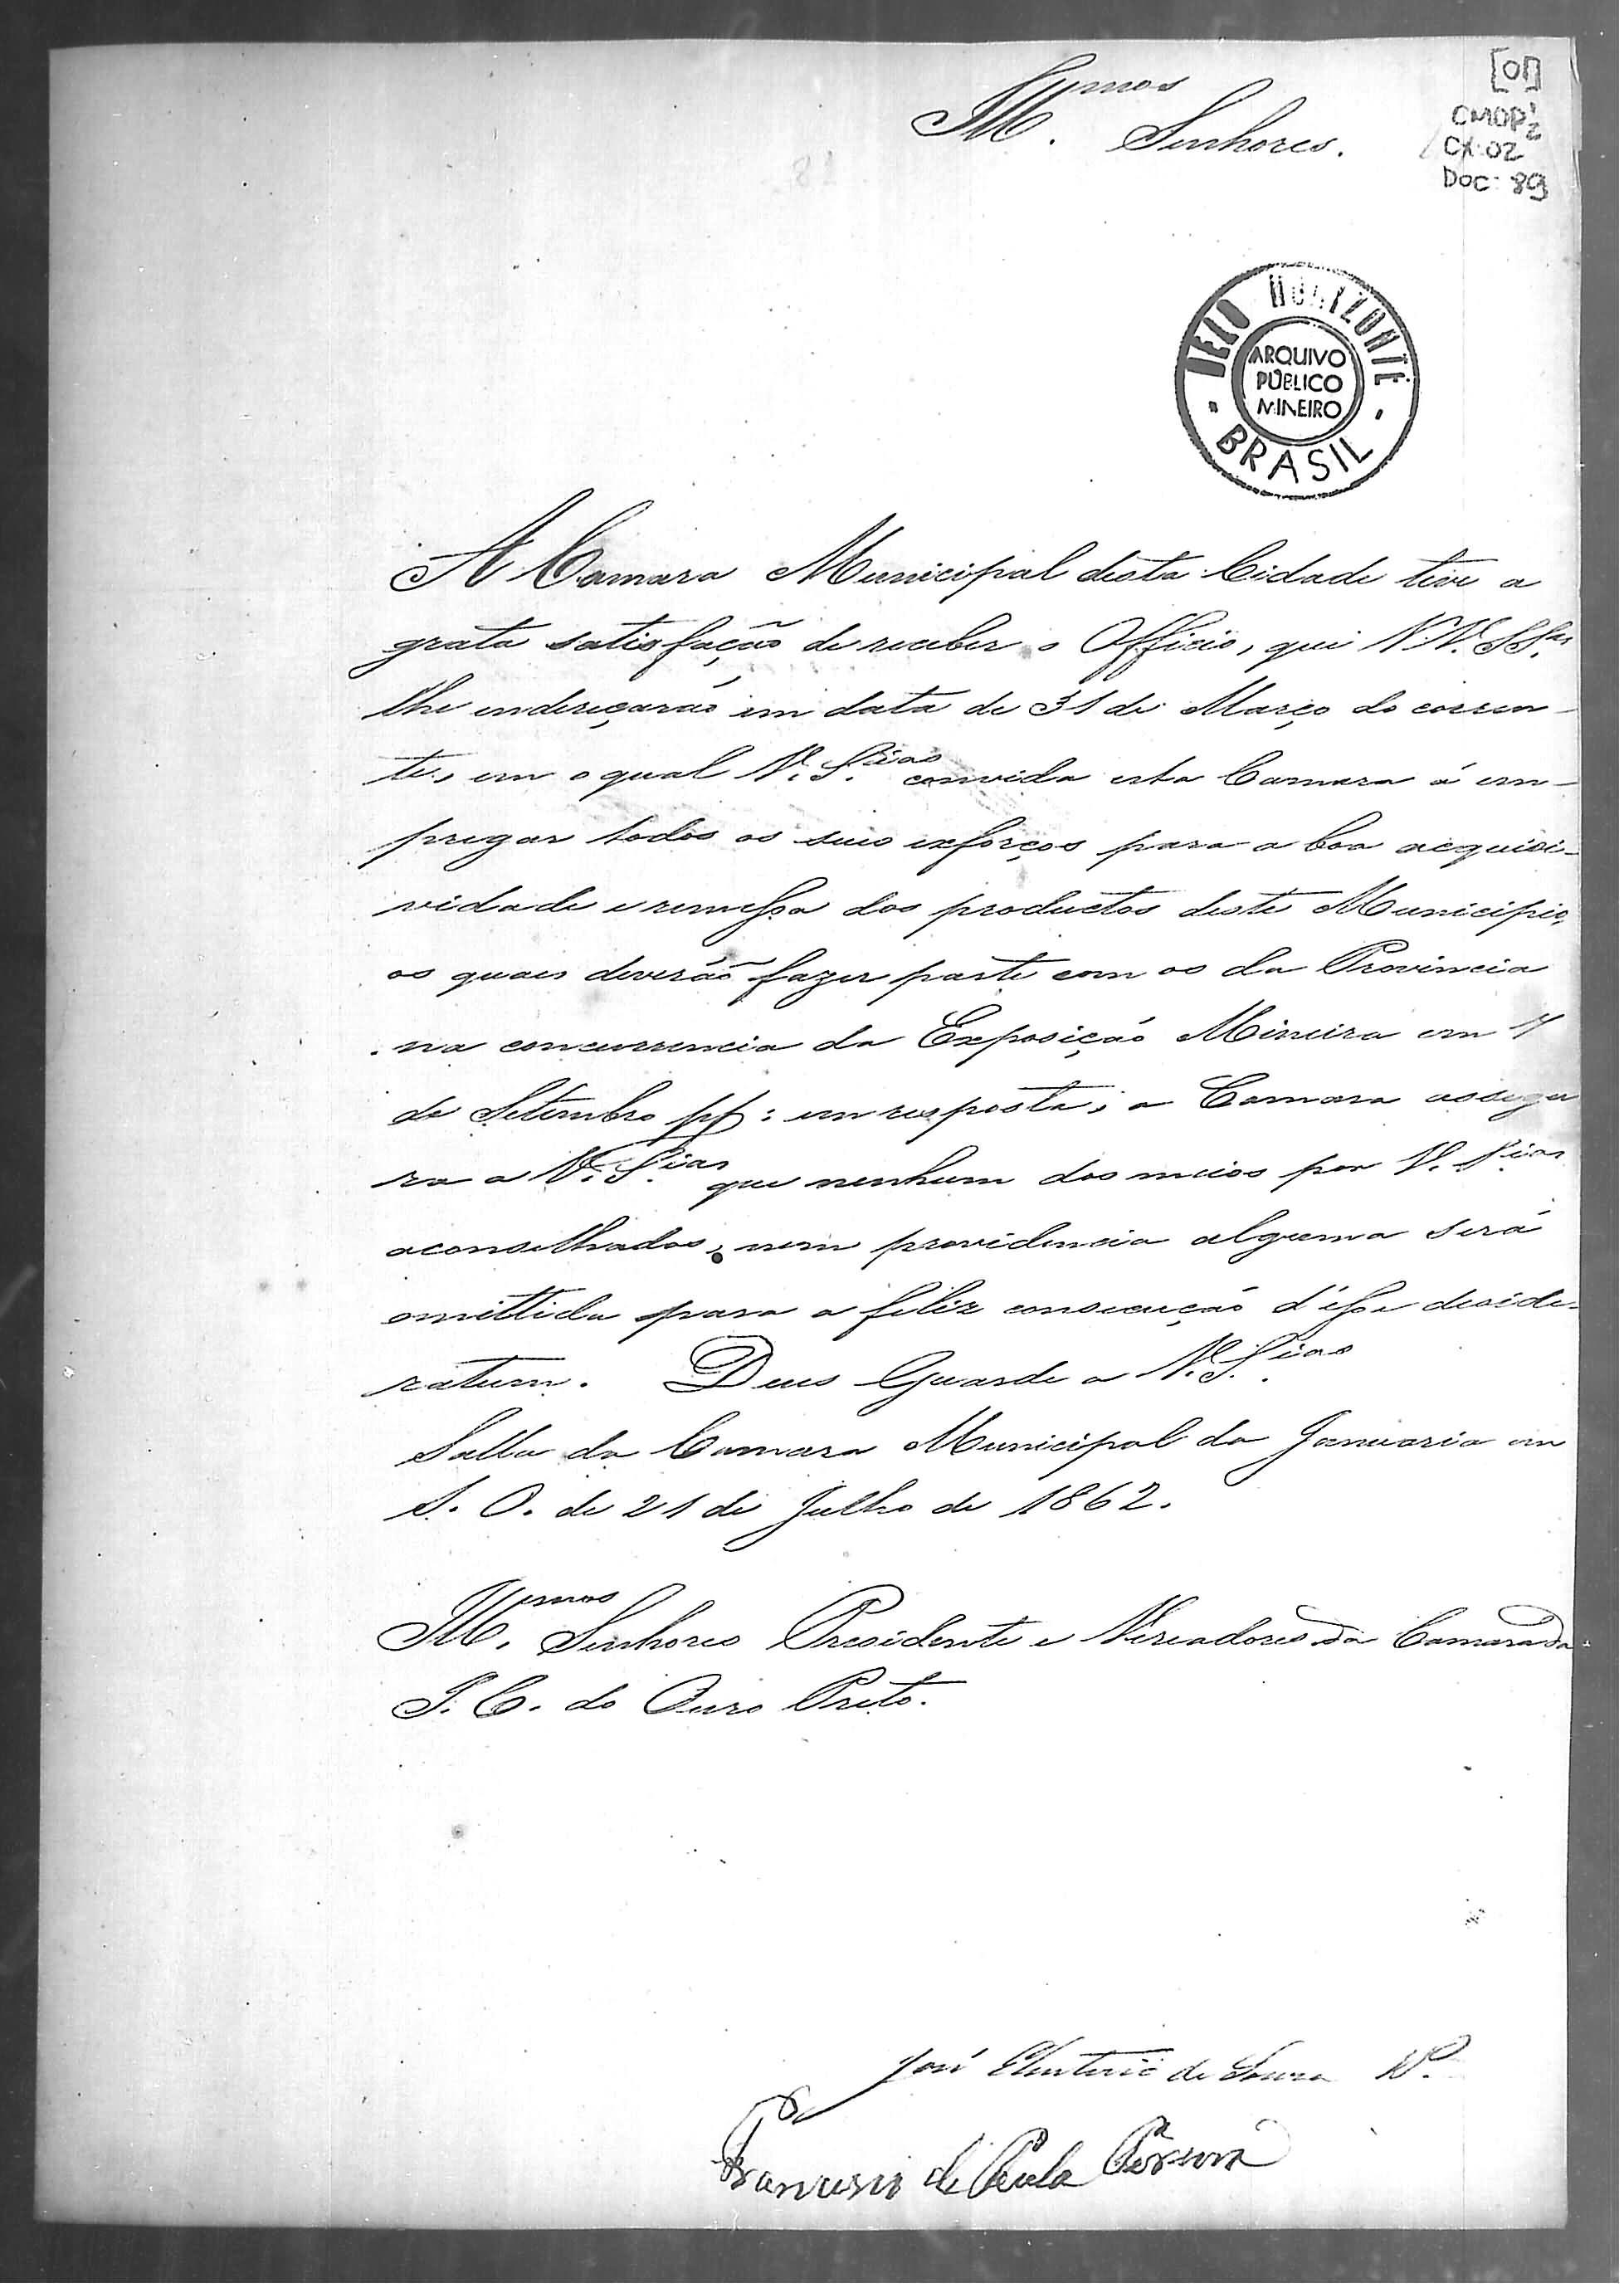 [01]
CMOP 1/2
CX: 02
DOC: 89
Ill.mos Senhores.
BELO HORIZONTE
ARQUIVO
PÚBLICO
MINEIRO
BRASIL
A Camara Municipal desta Cidade teve a
grata satisfação de receber o Officio, que VV. SS.as
lhe endereçarão em data de 31 de Março do corren-
te, em o qual V. S.ias convida esta Camara á em-
pregar todos os seus exforços para a boa acquisi-
vidade e remessa dos productos deste Municipio,
os quaes deverão fazer parte com os da Provincia
na concurrencia da Exposição Mineira em 7
de Setembro pf: em resposta, a Camara assegu
ra a V. S.ias que nenhum dos meios por V. S.ias
aconselhados, nem providencia alguma será
omittida para a feliz consecução d'esse deside-
ratum. Deus Guarde a V. S.ias
Salla da Camara Municipal da Januaria em
S. O. de 21 de Julho de 1862.
Ill.mos Senhores Presidente e Vereadores da Camara da
I. C. do Ouro Preto.
José Eleuterio de Souza
Francisco de Paula